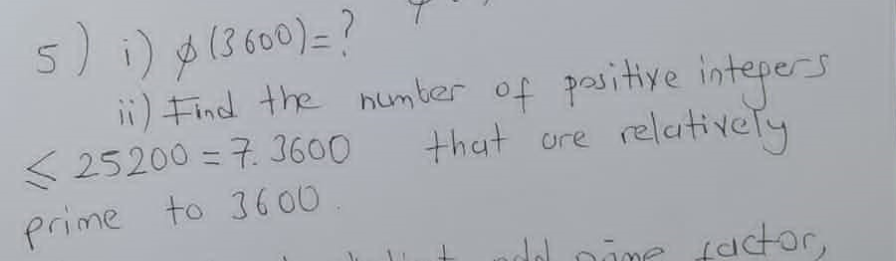 5) i) ϕ(3600)=?
ii) Find the number of positive integers
≤ 25200 = 7.3600 that are relatively
prime to 3600.
odd prime factor,